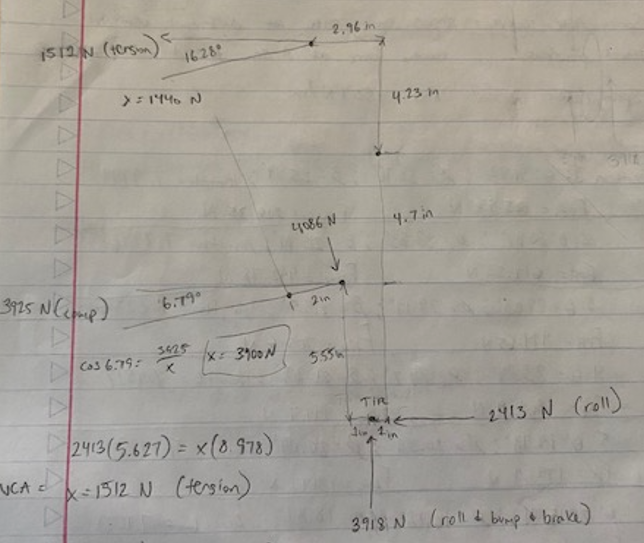 2.96 in
1512 N (tension)
16.28°
x = 1440 N
4.23 in
4086 N
4.7 in
3925 N (comp)
6.79°
2in
cos 6.79 = 3925/x
x = 3900 N
5.55in
TIR
1in
1in
2413 N (roll)
2413(5.627) = x(8.978)
UCA = x = 1512 N (tension)
3918 N (roll & bump & brake)